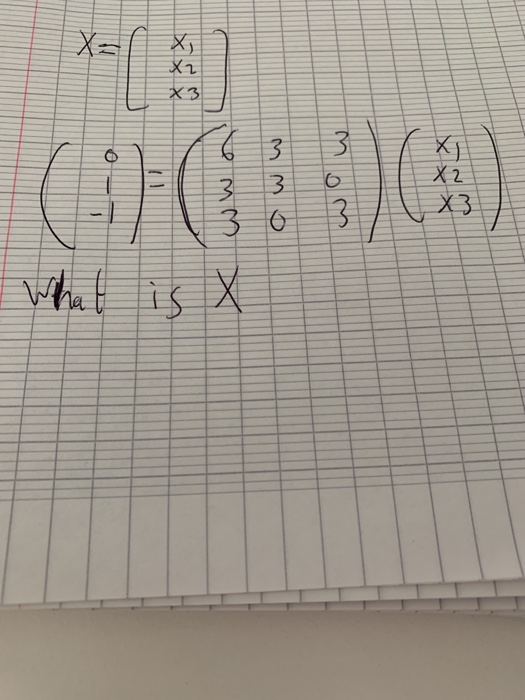 X = [ x1
x2
x3 ]
( 0 1 -1 ) = ( 6 3 3
3 3 0
3 0 3 ) ( x1 x2 x3 )
What is X